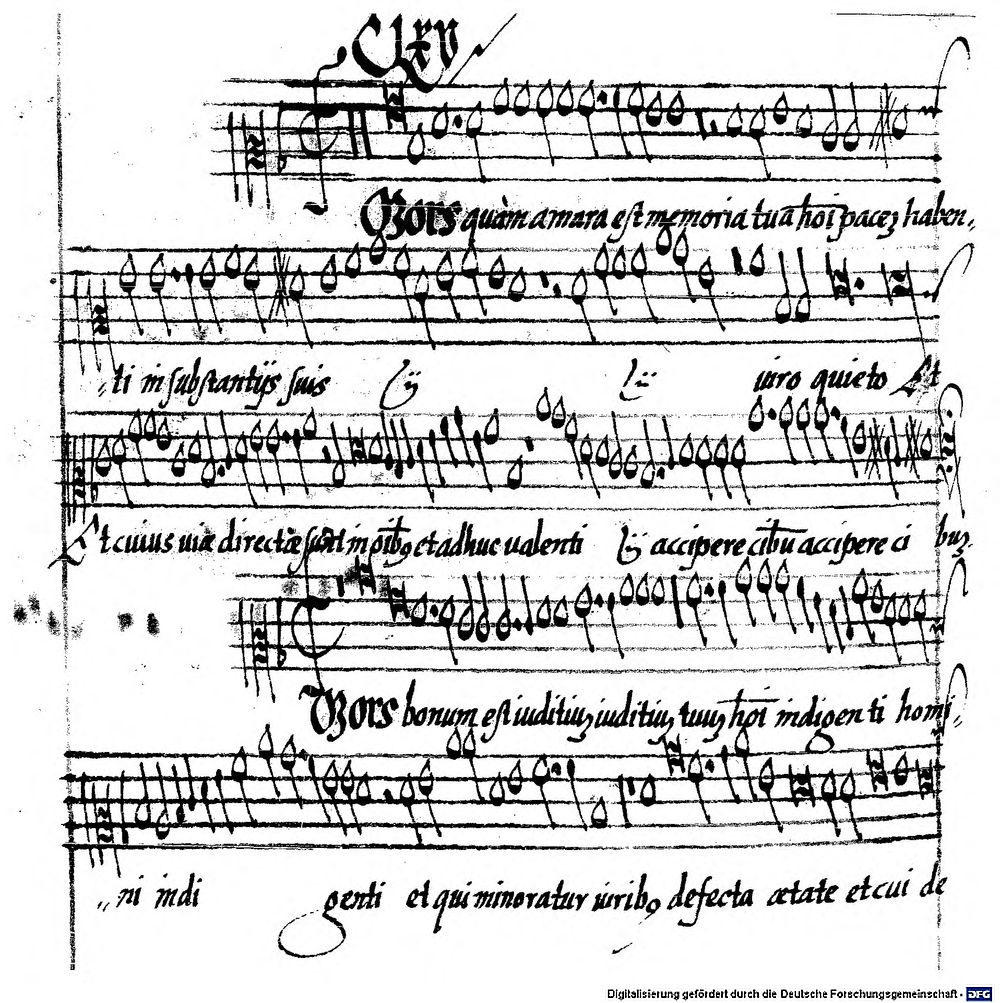 Clxv
Mors quàm amara est memoria tua hoī pacẽ haben,,
,,ti in substantijs suis ij ij viro quieto Et
Et cuius viæ directæ sunt in oĩbꝯ et adhuc valenti ij accipere cibū accipere ci buȝ.
Mors bonum est iuditiuȝ iuditiuȝ tuuȝ hoī indigenti homi,,
,,ni indi genti et qui minoratur viribꝯ defecta ætate et cui de
Digitalisierung gefördert durch die Deutsche Forschungsgemeinschaft - DFG